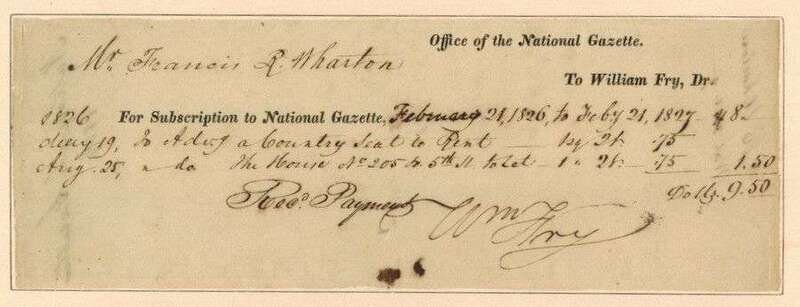 Office of the National Gazette.
Mr. Francis R. Wharton
To William Fry, Dr.
1826 For Subscription to National Gazette, February 21, 1826, to Feby 21, 1827 $8.
May 19, To Advg a Country Seat to Rent 1sq 2t. .75
Aug. 25, " do the House No 205 So 5th St to let 1 " 2t. .75 1.50
Dolls. 9.50
Recd. Payment
Wm Fry